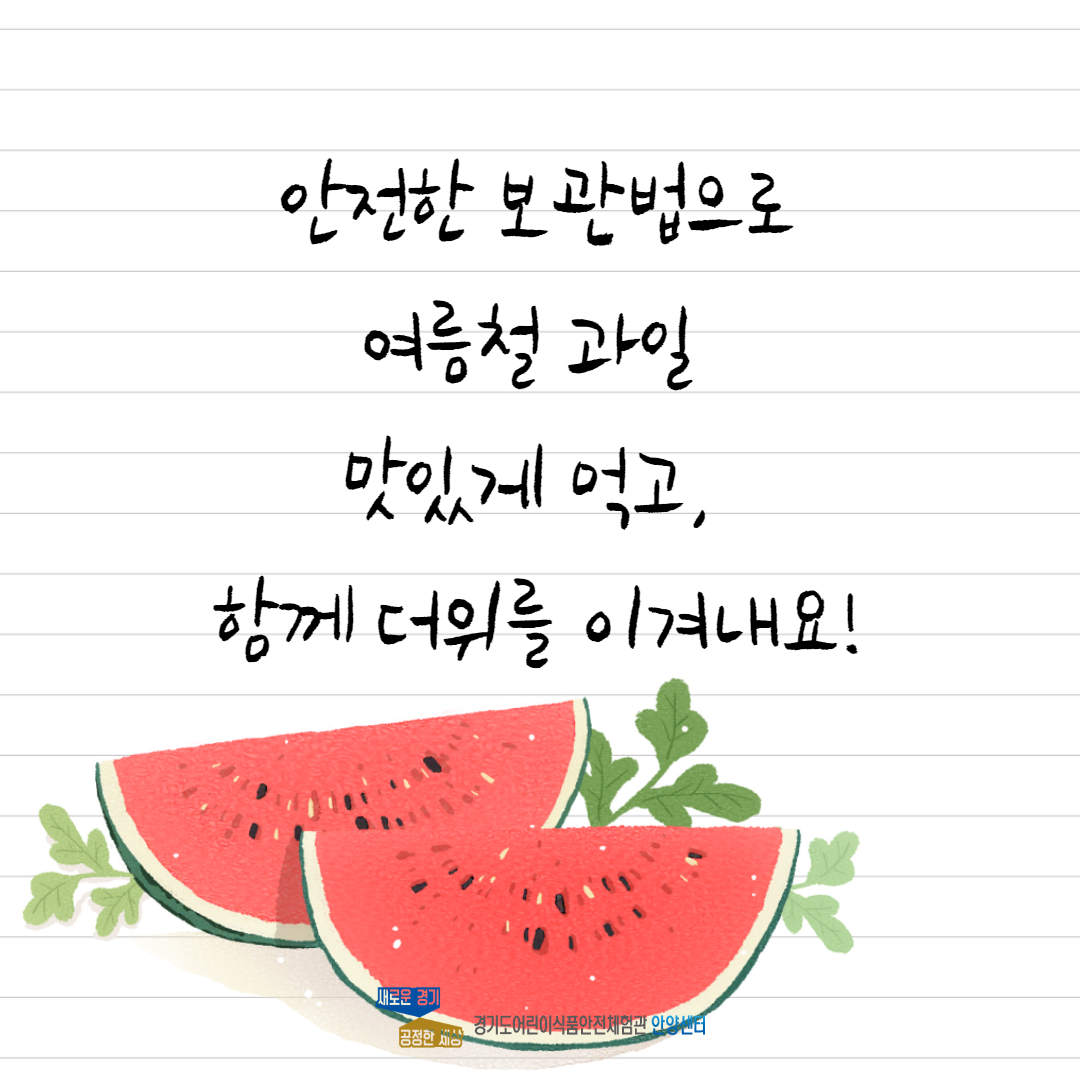 안전한 보관법으로
여름철 과일
맛있게 먹고,
함께 더위를 이겨내요!
새로운 경기
공정한 세상
경기도어린이식품안전체험관 안양센터